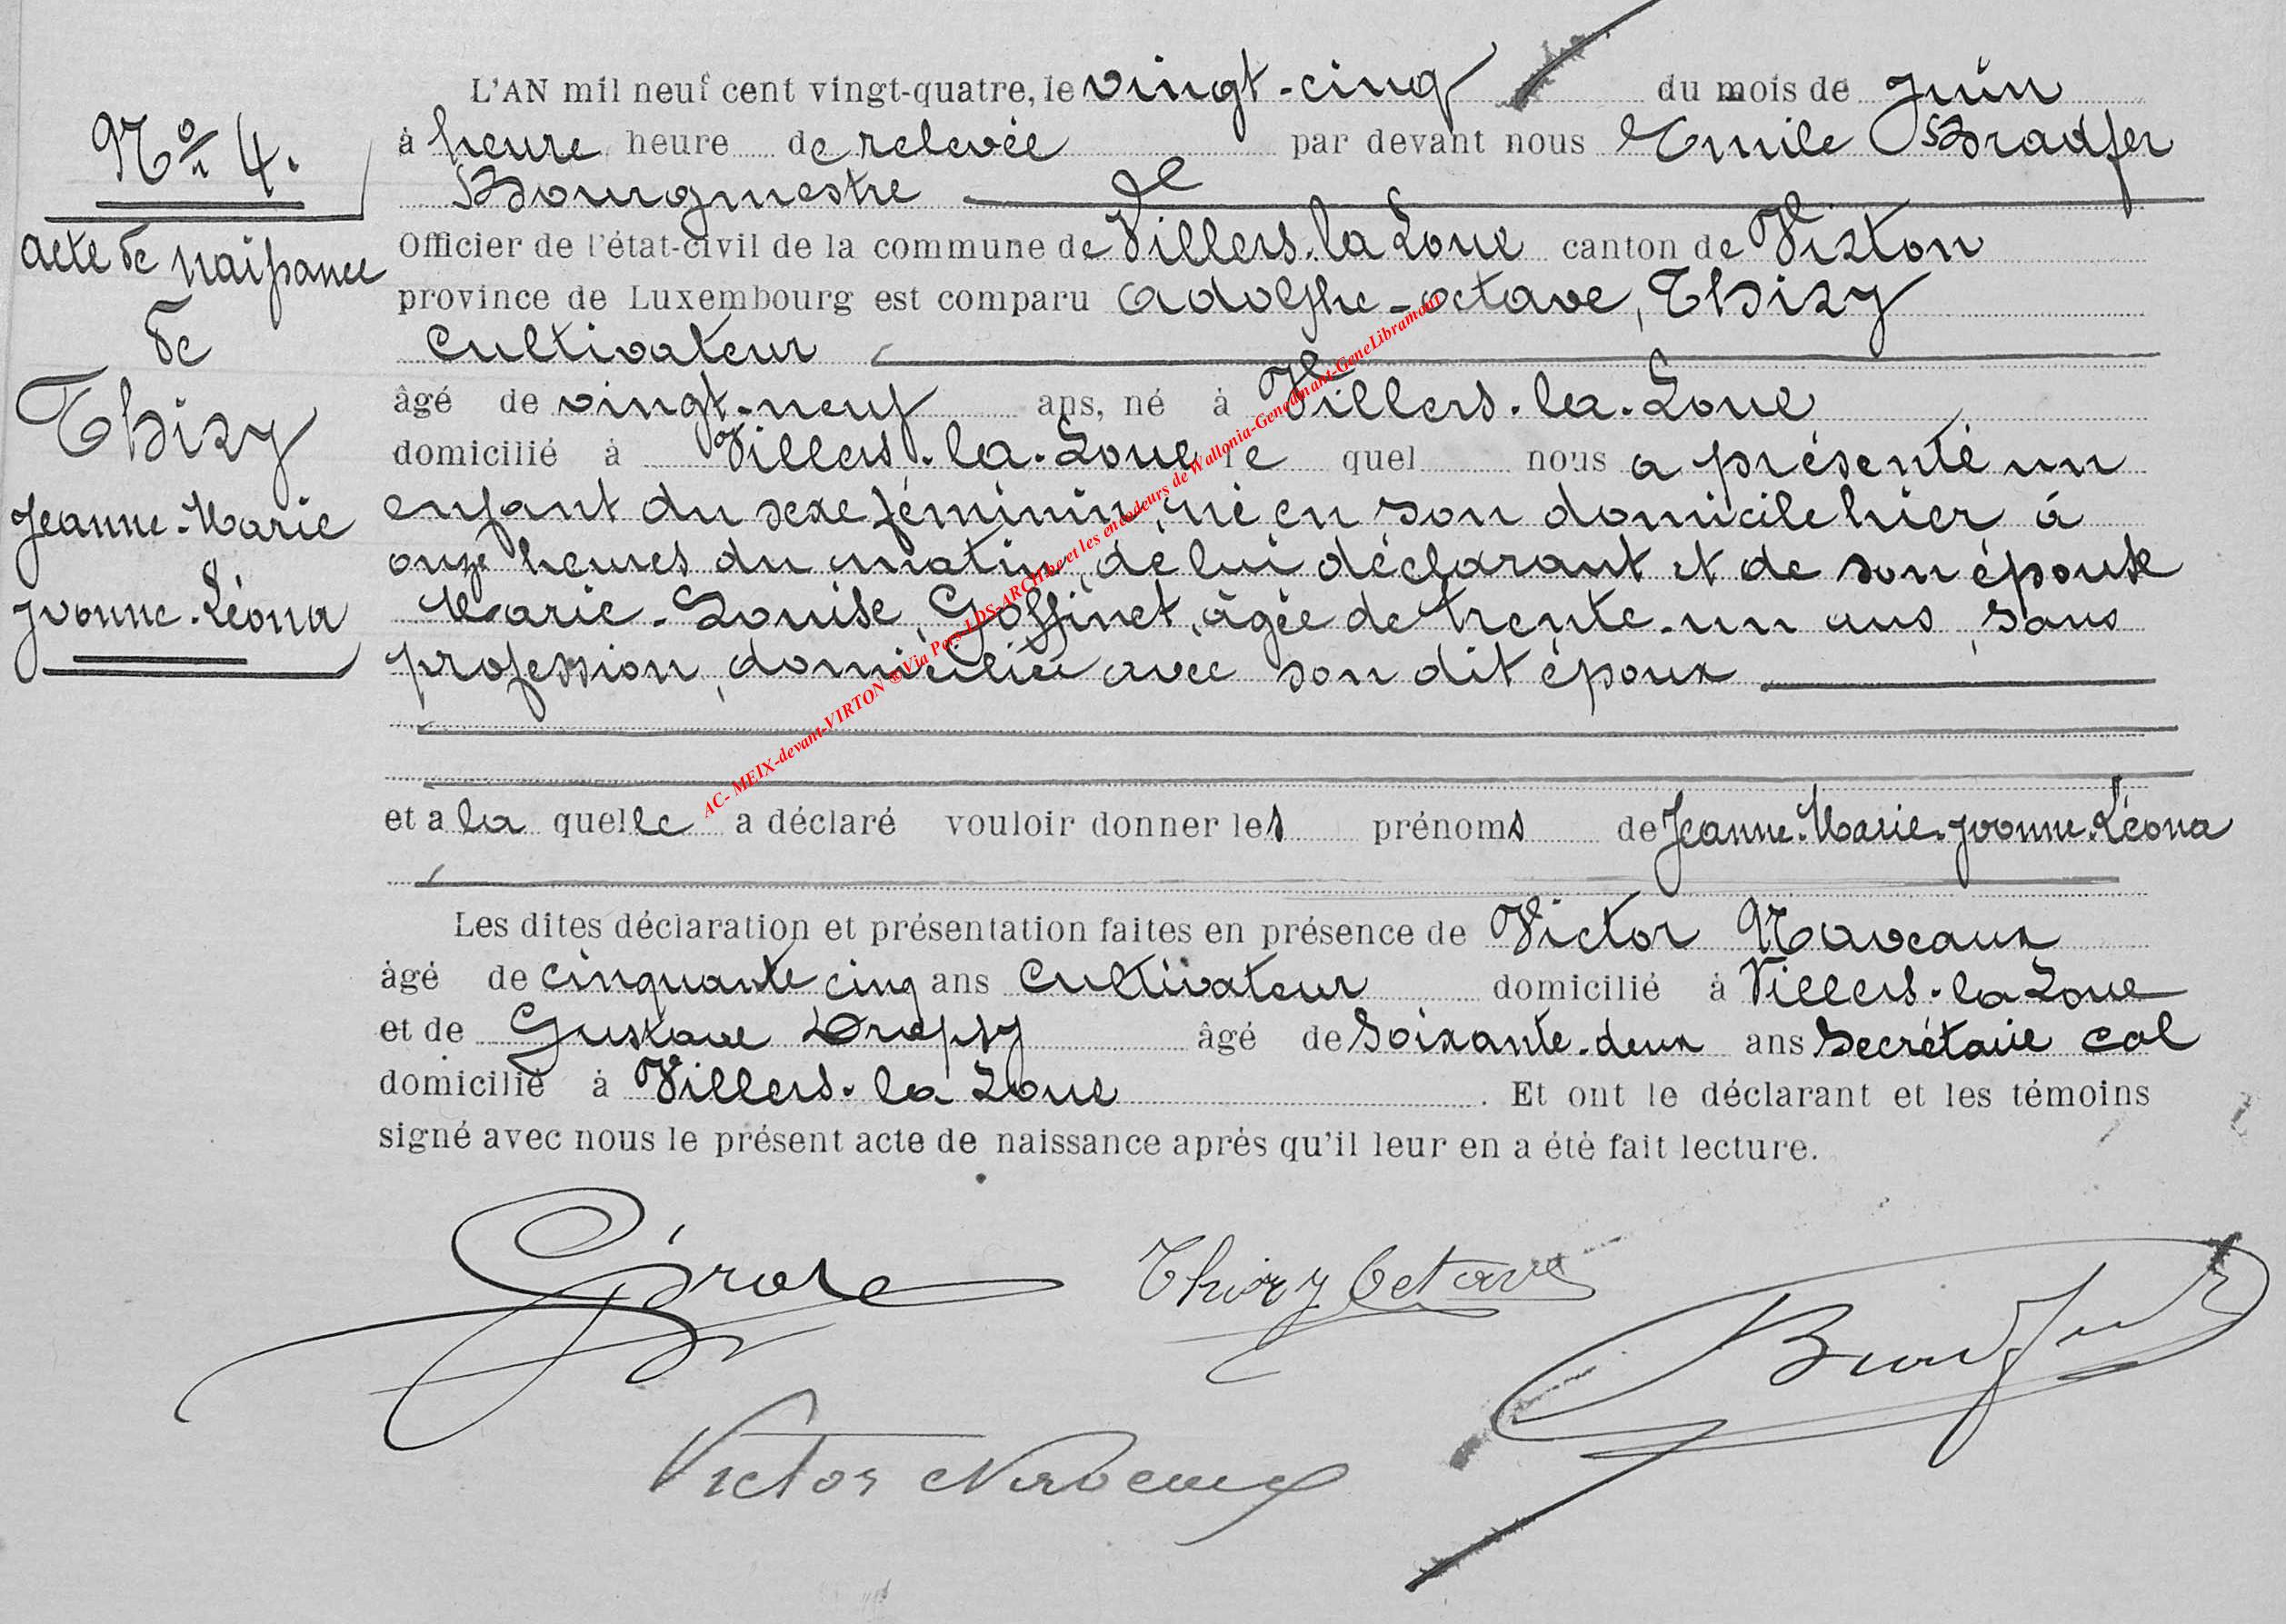 L'AN mil neuf cent vingt-quatre, le vingt-cinq du mois de Juin
N° 4.
à heure heure de relevée par devant nous Emile Bradfer
Bourgmestre de
acte de naissance
Officier de l'état-civil de la commune de Villers-la-Loue canton de Virton
province de Luxembourg est comparu Adolphe-Octave, Thiry
de
Cultivateur
Thiry
âgé de vingt-neuf ans, né à Villers-la-Loue
domicilié à Villers-la-Loue le quel nous a présenté un
Jeanne-Marie
enfant du sexe féminin, né en son domicile hier à
onze heures du matin, de lui déclarant et de son épouse
Yvonne-Léona
Marie-Louise, Goffinet, âgée de trente-un ans, sans
profession, domiciliée avec son dit époux
et a la quelle a déclaré vouloir donner les prénoms de Jeanne-Marie-Yvonne-Léona
Les dites déclaration et présentation faites en présence de Victor Naveaux
âgé de cinquante cinq ans Cultivateur domicilié à Villers-la-Loue
et de Gustave âgé de Soixante-deux ans Secrétaire cal
domicilié à Villers-la-Loue. Et ont le déclarant et les témoins
signé avec nous le présent acte de naissance après qu'il leur en a été fait lecture.
Thiry Octave
Bradfer
Victor Naveaux
AC- MEIX-devant-VIRTON © Via Pays-LDS-ARCH.be et les encodeurs de Wallonia-Genedinant-GeneLibramont